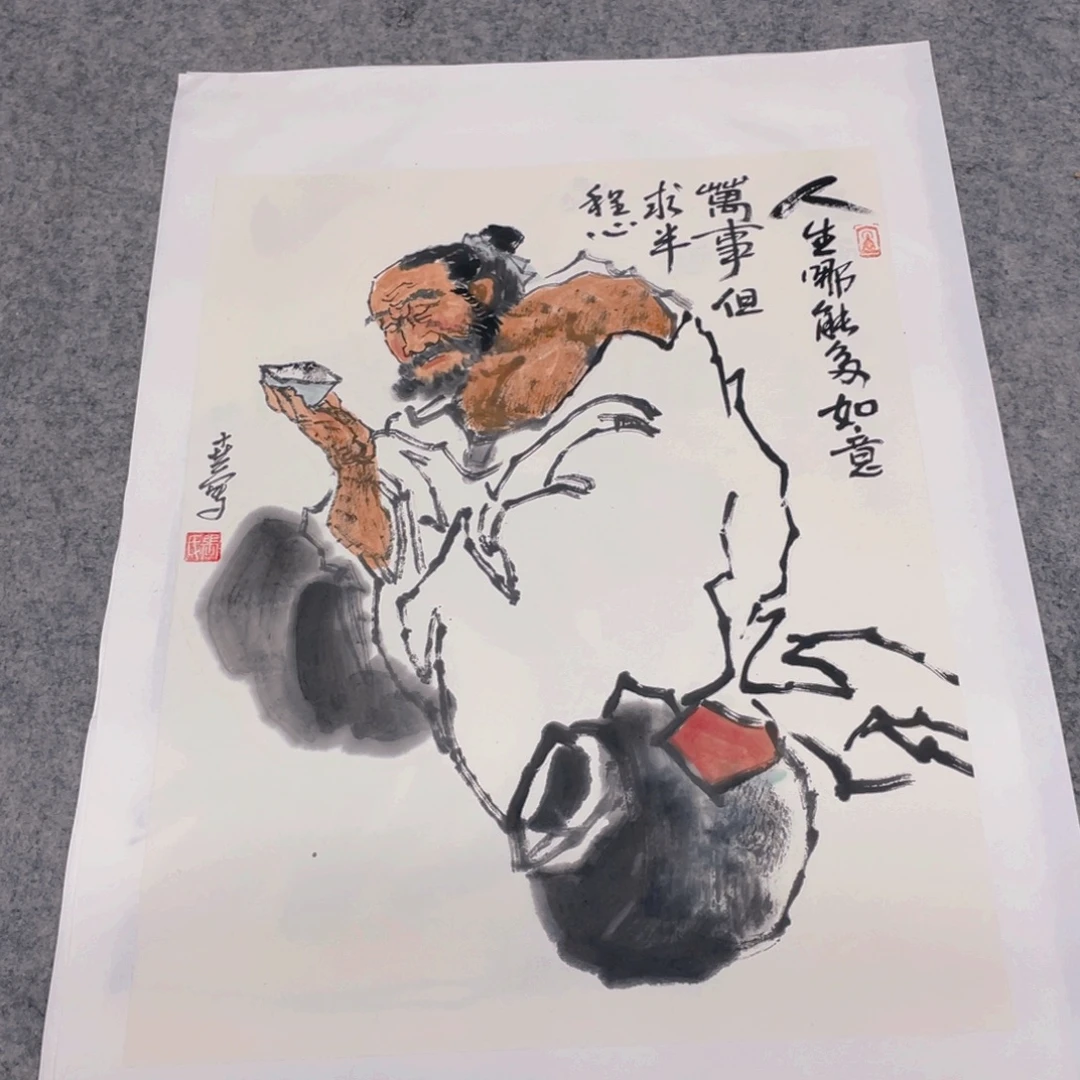 人生哪能多如意
萬事但
求半
稱心